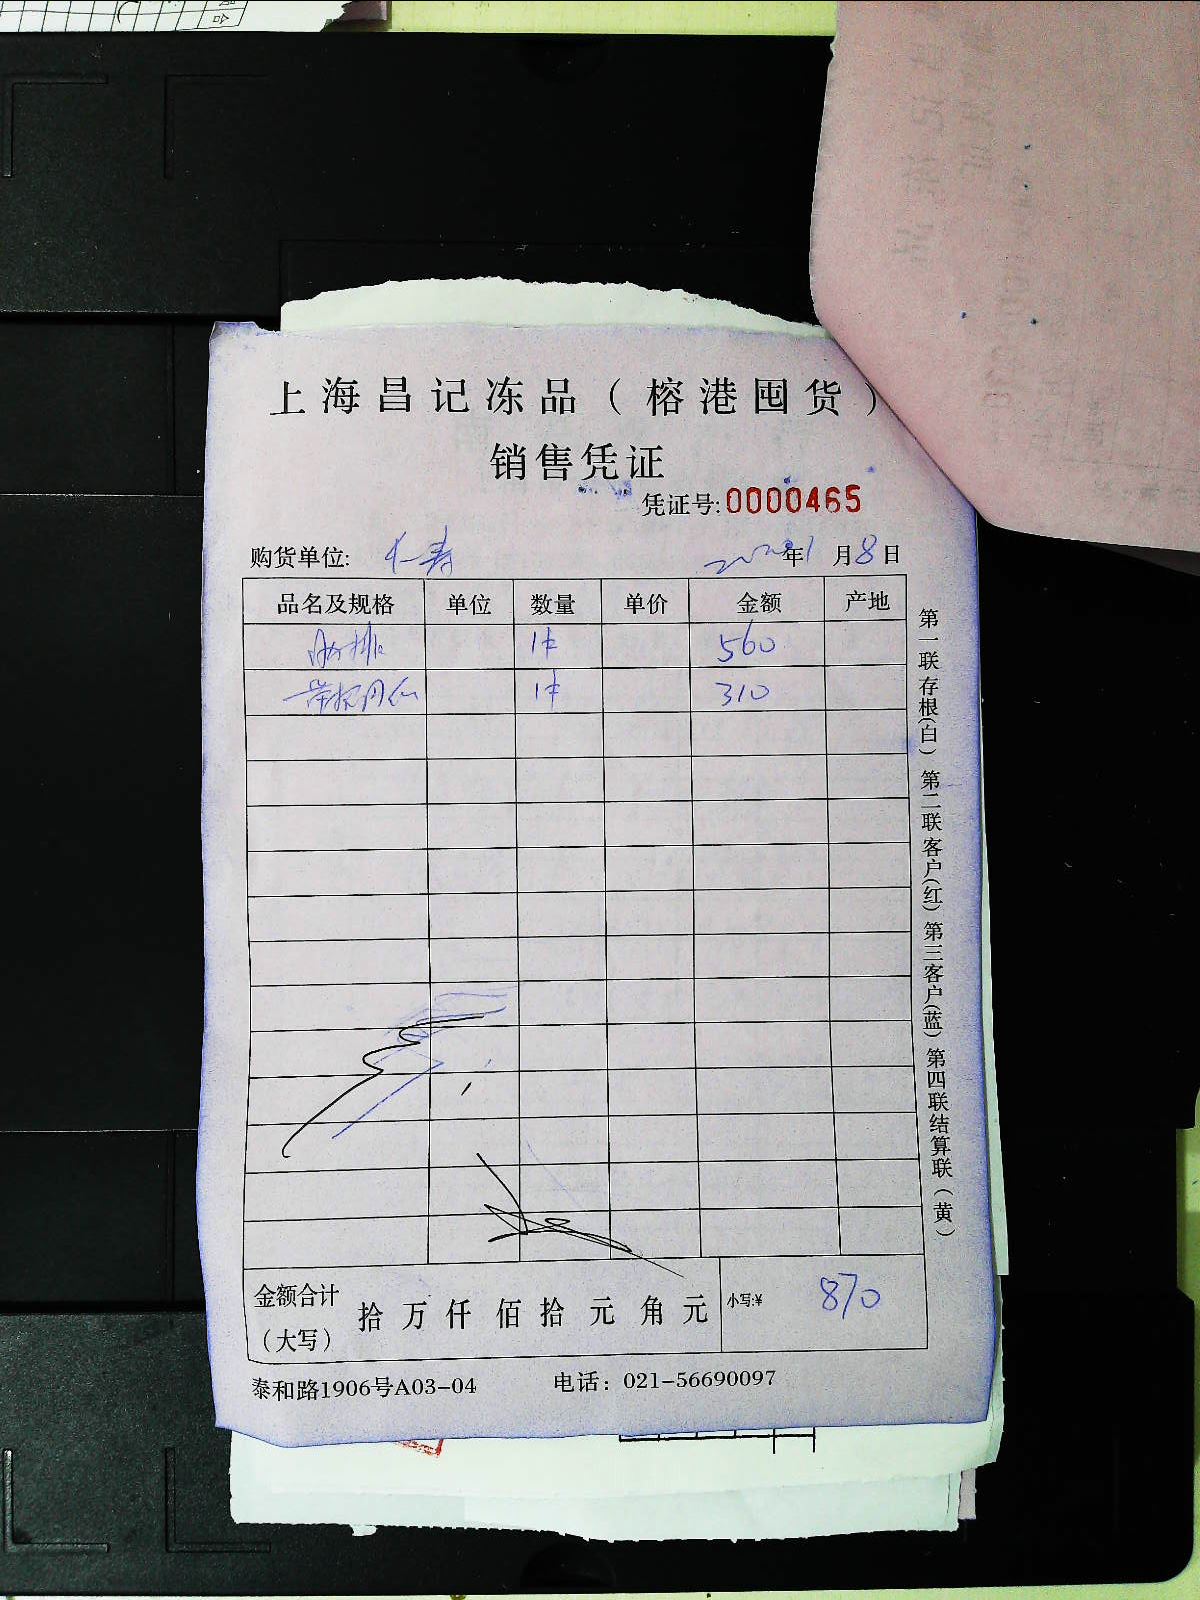 上海昌记冻品（榕港囤货）
销售凭证
凭证号:0000465
购货单位: 仁寿 年1月8日
品名及规格 单位 数量 单价 金额 产地
1件 560
1件 310
金额合计（大写） 拾 万 仟 佰 拾 元 角 元 小写:¥ 870
泰和路1906号A03-04 电话：021-56690097
第一联存根(白) 第二联客户(红) 第三客户(蓝) 第四联结算联（黄）